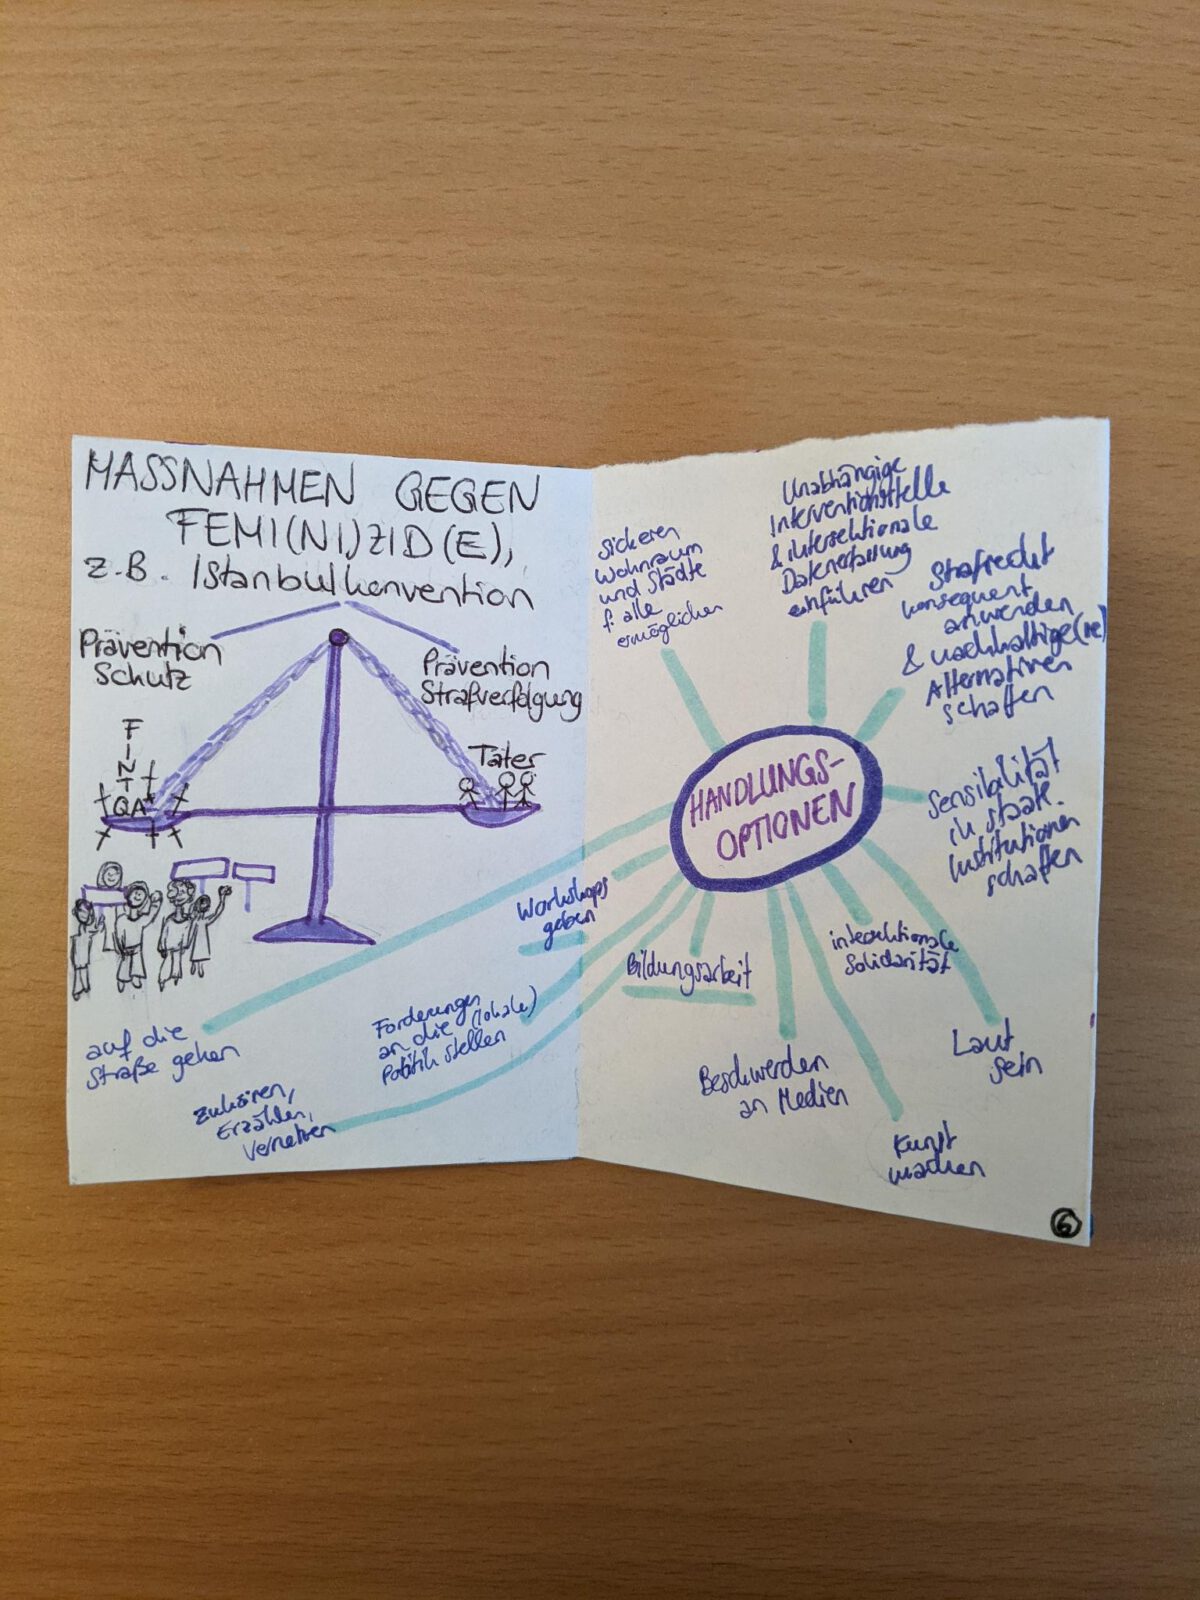 MASSNAHMEN GEGEN
FEMI(NI)ZID(E),
z.B. Istanbulkonvention
Prävention
Schutz
Prävention
Strafverfolgung
F
I
N
T
QA*
Täter
auf die
Straße gehen
Zuhören,
Erzählen,
Vernetzen
Forderungen
an die (lokale)
Politik stellen
Workshops
geben
HANDLUNGS-
OPTIONEN
Sicheren
Wohnraum
und Städte
f. alle
ermöglichen
Unabhängige
Interventionsstelle
& intersektionale
Datenerfassung
einführen
Strafrecht
konsequent
anwenden
& nachhaltige(re)
Alternativen
schaffen
Sensibilität
in staatl.
Institutionen
schaffen
Bildungsarbeit
intersektionale
Solidarität
Beschwerden
an Medien
Laut
sein
Kunst
machen
6